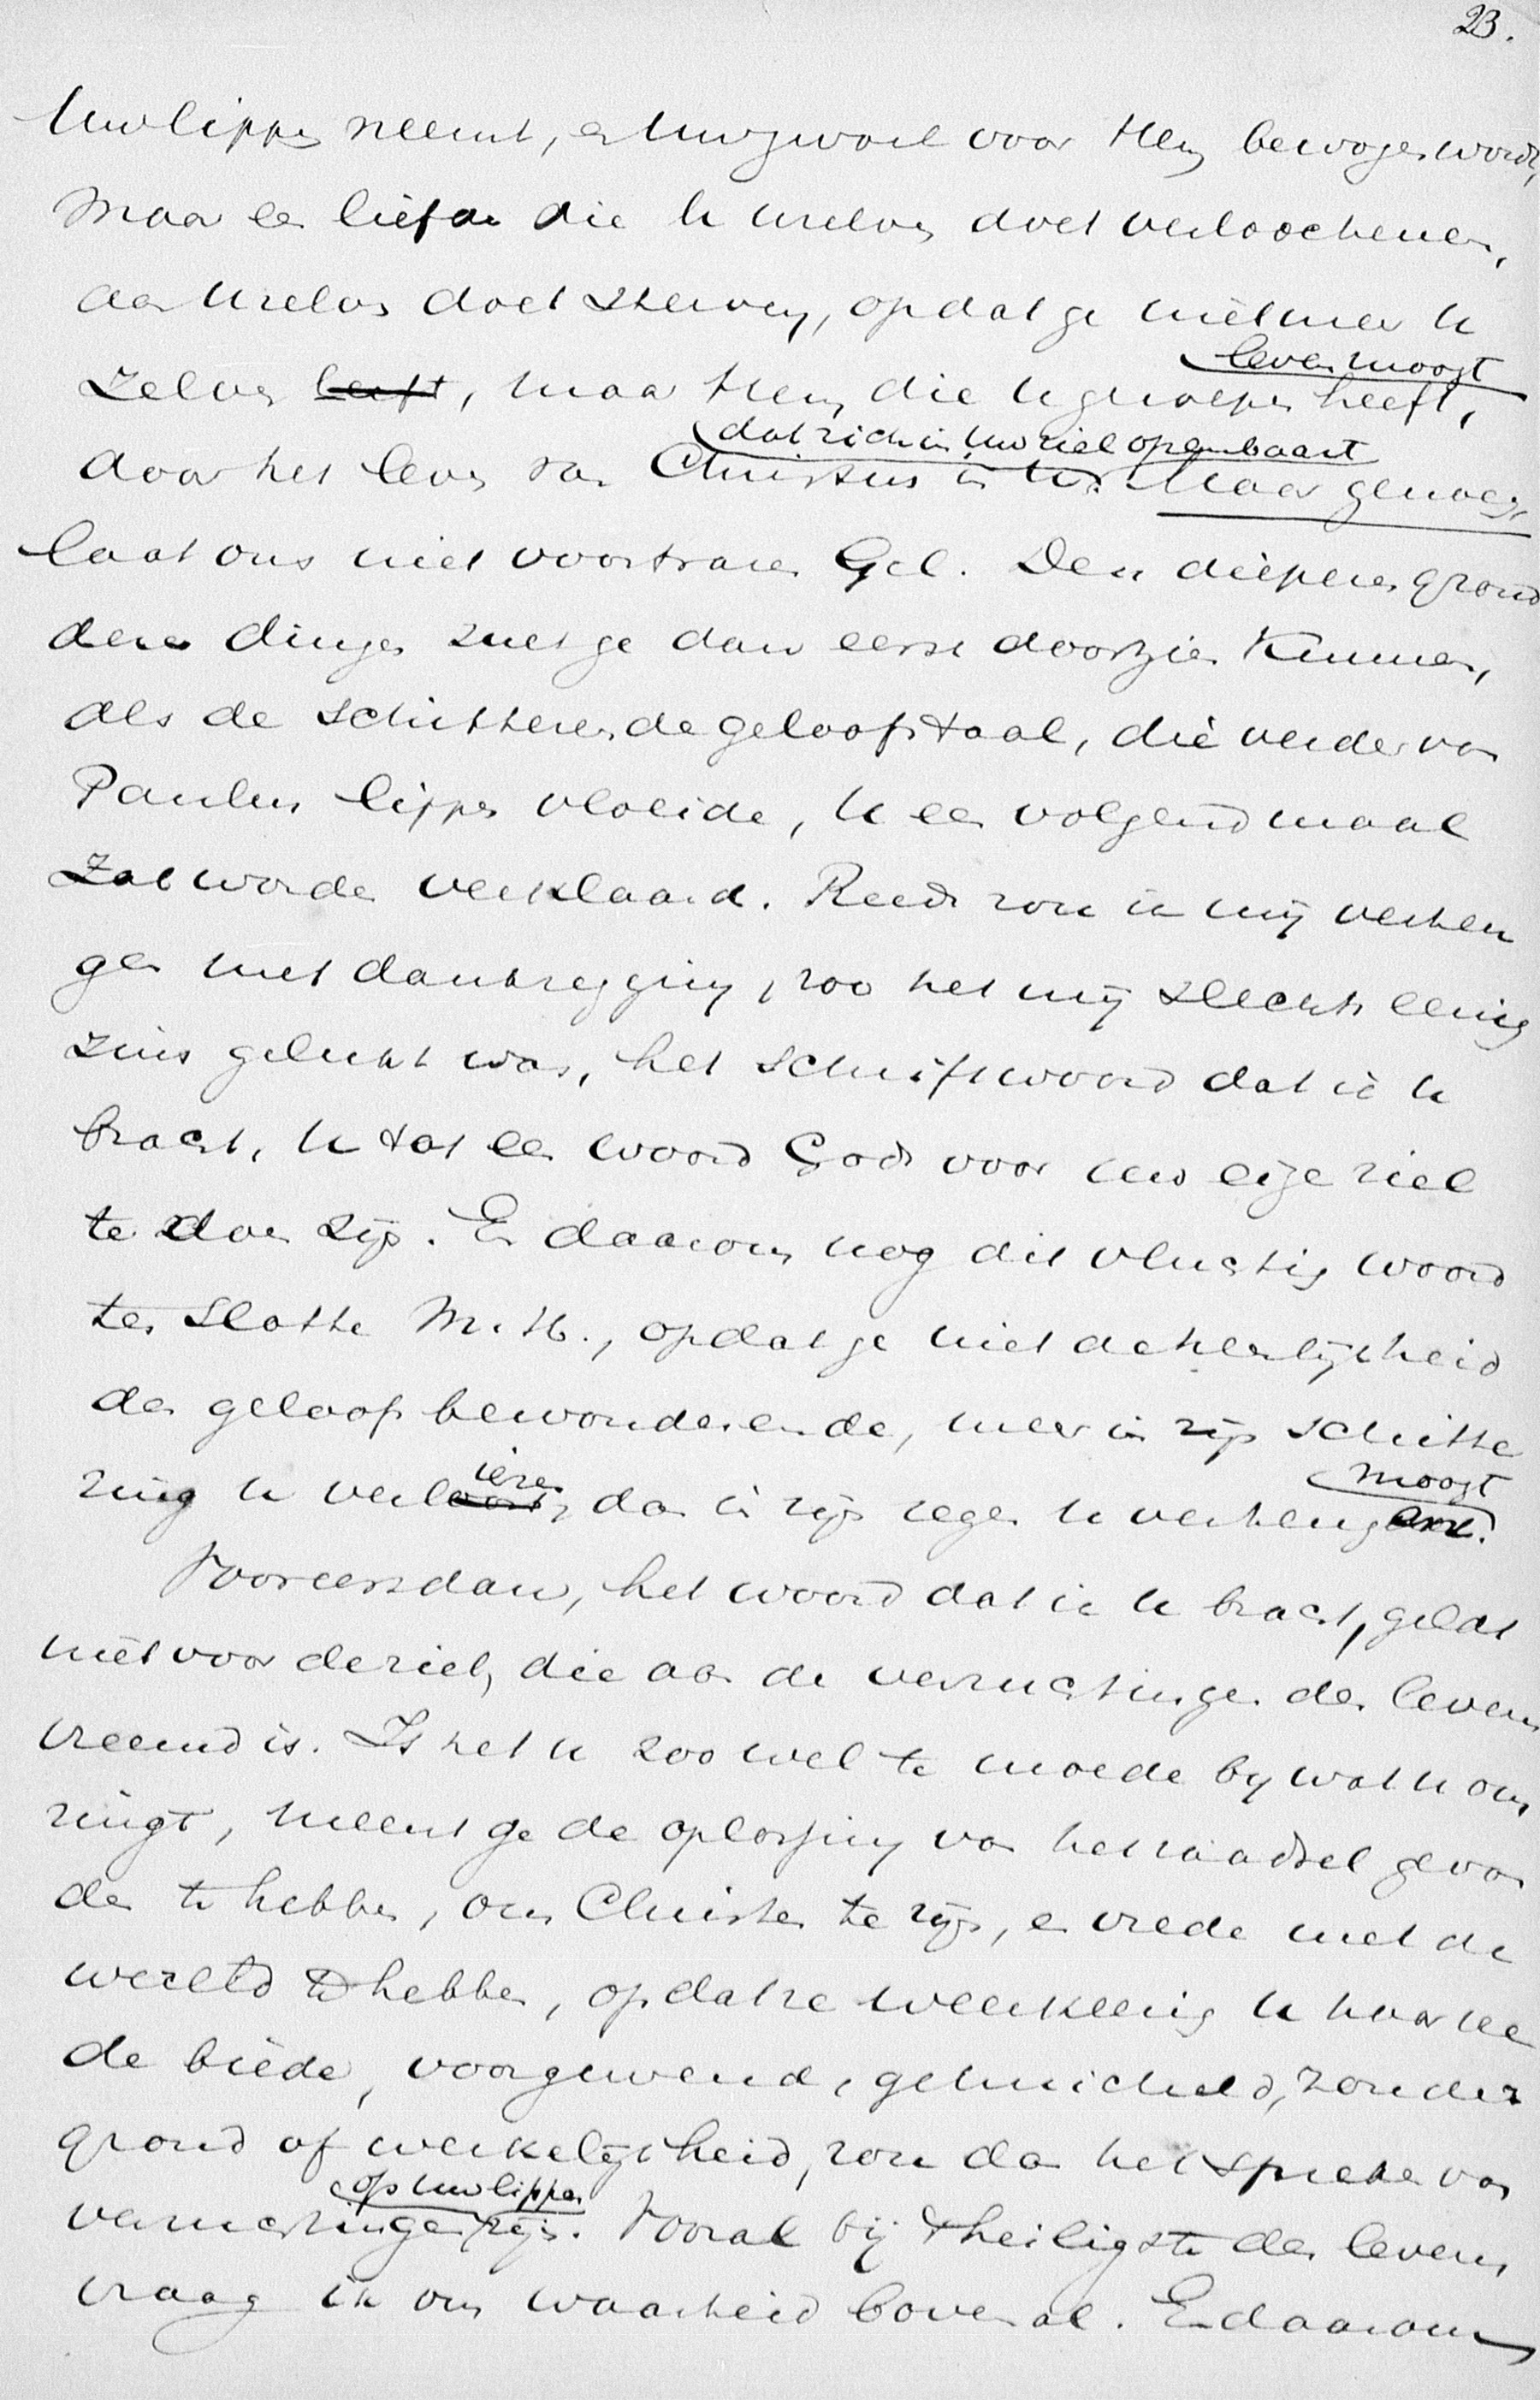 23.
Uw lippen neemt, en Uw zwaard voor Hem bewogen wordt,
Maar een liefde die U uzelven doet verloochenen,
aan Uzelven doet sterven, opdat ge niet meer U
leven moogt
zelven leeft, maar Hem, die U geroepen heeft,
dat zich in Uw ziel openbaart
door het leven van Christus in U. Maar genoeg,
laat ons niet voortvaren Gel. Den dieperen grond
dezer dingen zult ge dan eerst doorzien kunnen,
als de schitterende geloofstaal, die verder van
Paulus lippen vloeide, U een volgend maal
zal worden verklaard. Reeds zou ik mij verheu
gen met dankzegging, zoo het mij slechts eenig
zins gelukt was, het Schriftwoord dat ik U
bracht, U tot een woord Gods voor uw eigen ziel
te doen zijn. En daarom nog dit vluchtig woord
ten slotte M. H., opdat ge niet de heerlijkheid
des geloofs bewonderende, meer in zijn schitte
iezen
moogt
ring U verloort, dan in zijn zegen U verheugen.
Vooreerst dan, het woord dat ik U bracht, geldt
niet voor de ziel, die aan de verzuchtingen des levens
vreemd is. Is het U zoo wel te moede by wat U om
ringt, meent ge de oplossing van het raadsel gevon
den te hebben, om Christen te zijn, en vrede met de
wereld te hebben, opdat ze weerkeerig U haar vre
de biede, voorgewend, gehuicheld, zonder
grond of werkelijkheid, zou dan het spreken van
op uw lippen
verzuchtingen zijn. Vooral bij 't heiligste des levens
vraag ik om waarheid bovenal. En daarom